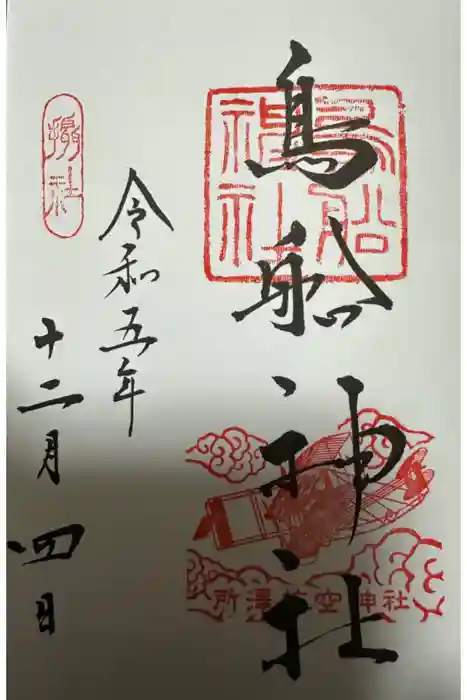 鳥船神社
鳥船神社
所澤航空神社
令和五年
十二月四日
摂社